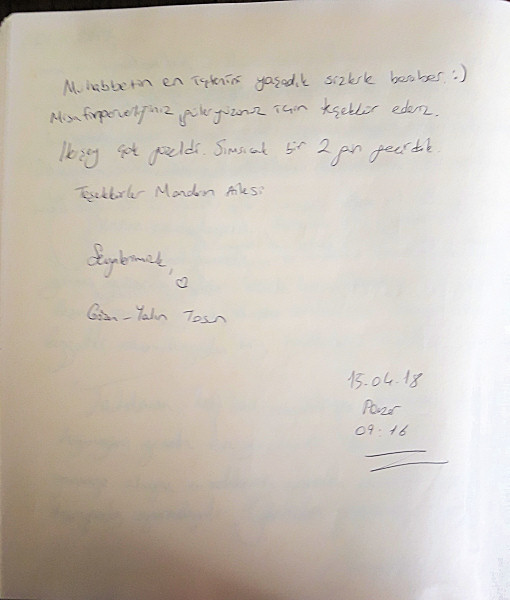 Muhabbetin en içtenini yaşadık sizlerle beraber :)
Misafirperverliğiniz, güleryüzünüz için teşekkür ederiz.
Herşey çok güzeldi. Sımsıcak bir 2 gün geçirdik.
Teşekkürler Mandalin Ailesi
Sevgilerimizle,
Yalın Tosun
15.04.18
Pazar
09:16